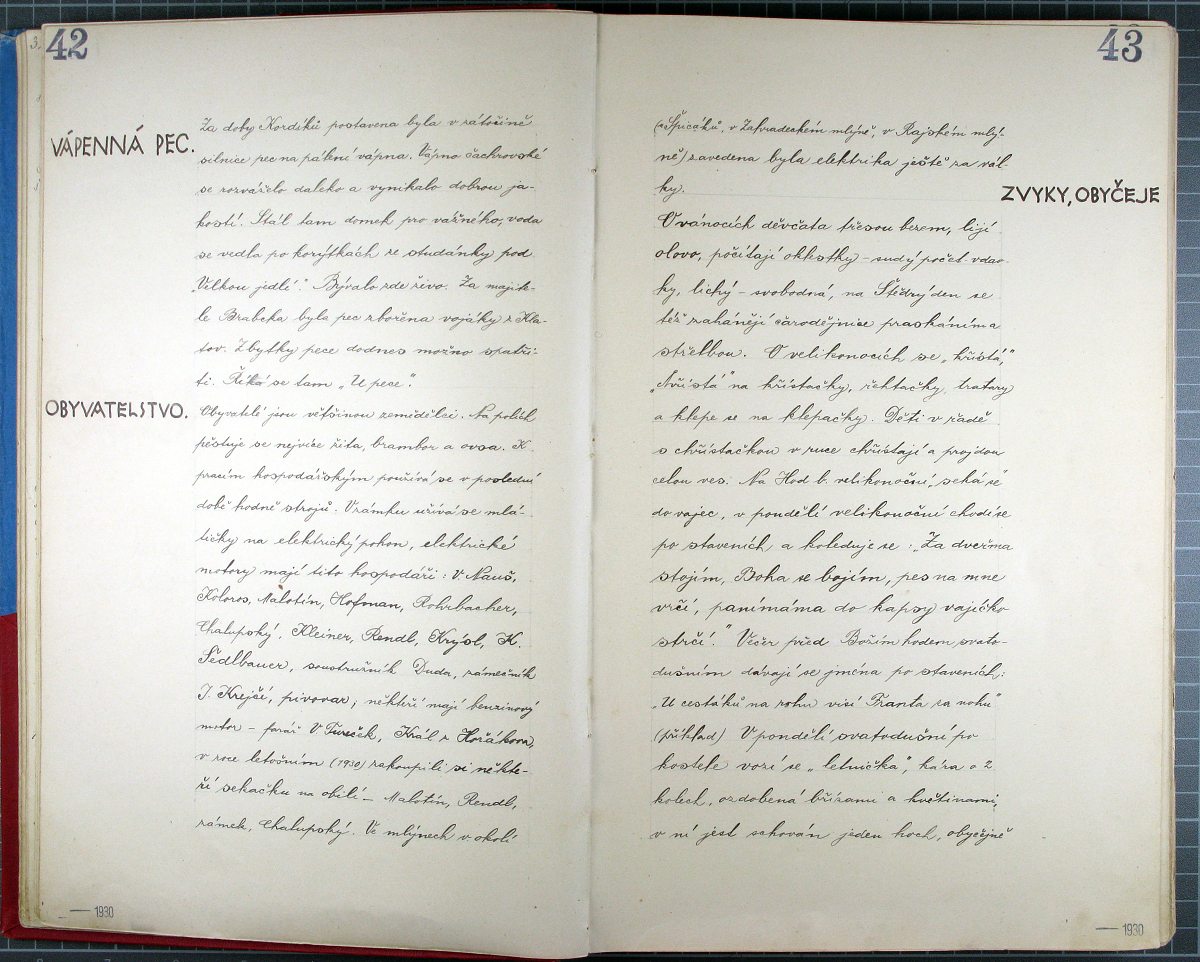 42
VÁPENNÁ PEC.
Za doby Kordíků postavena byla v zátočině
silnice pec na pálení vápna. Vápno čachrovské
se rozváželo daleko a vynikalo dobrou ja-
kostí. Stál tam domek pro vážného, voda
se vedla po korýtkách ze studánky pod
„Velkou jedlí." Bývalo zde živo. Za majite-
le Brabcka byla pec zbořena vojáky z Kla-
tov. Zbytky pece dodnes možno spatři-
ti. Říká se tam „U pece".
OBYVATELSTVO.
Obyvatelé jsou většinou zemědělci. Na polích
pěstuje se nejvíce žita, brambor a ovsa. K
pracím hospodářským používá se v poslední
době hodně strojů. V zámku užívá se mlá-
tičky na elektrický pohon, elektrické
motory mají tito hospodáři: V. Nauš,
Koloros, Malotín, Hofman, Rohrbacher,
Chalupský, Kleiner, Rendl, Krýsl, K.
Sedlbauer, soustružník Duda, zámečník
J. Krejčí, pivovar; někteří mají benzinový
motor – farář V. Tureček, Král z Hořákova,
v roce letošním (1930) zakoupili si někte-
ří sekačku na obilí – Malotín, Rendl,
zámek, Chalupský. Ve mlýnech v okolí
— 1930
43
(u Špicáků, v Zahradeckém mlýně, v Rajském mlý-
ně) zavedena byla elektrika ještě za vál-
ky.
ZVYKY, OBYČEJE
O vánocích děvčata třesou bezem, lijí
olovo, počítají oklestky – sudý počet vdav-
ky, lichý – svobodná, na Štědrý den se
též zahánějí čarodějnice praskáním a
střelbou. O velikonocích se „křístá,"
„chřístá" na křístačky, řehtačky, tratary
a klepe se na klepačky. Děti v řadě
s chřístačkou v ruce chřístají a projdou
celou ves. Na Hod b. velikonoční „seká se"
do vajec, v pondělí velikonoční chodí se
po staveních a koleduje se: „Za dveřma
stojím, Boha se bojím, pes na mne
vrčí, panímáma do kapsy vajíčko
strčí." Večer před Božím hodem svato-
dušním dávají se jména po staveních:
„U cestáků na rohu visí Franta za nohu"
(příklad) V pondělí svatodušní po
kostele vozí se „letnička", kára o 2
kolech, ozdobená břízami a květinami,
v ní jest schován jeden hoch, obyčejně
— 1930